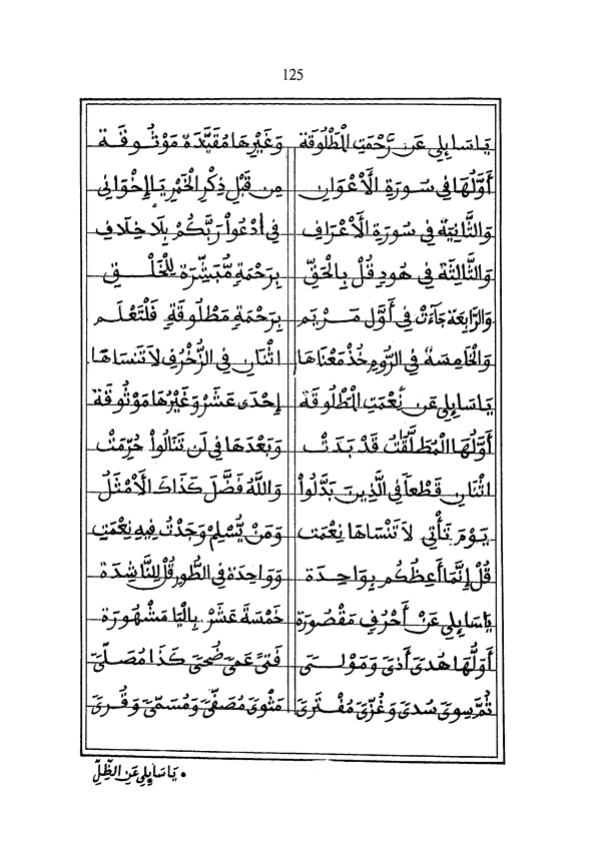 125
يَاسَايِلِي عَن رَّحْمَتِ الْمَطْلُوقَة وَغَيْرِهَا مُقَيَّدَة مَوْثُوقَة
أَوَّلُهَا فِي سُورَةِ الْأَعْوَانِ مِن قَبْلِ ذِكْرِ الْخَمْرِ يَا إِخْوَانِي
وَالثَّانِيَة فِي سُورَةِ الْأَعْرَافِ فِي أدْعُواْ رَبَّكُمْ بِلَا خِلَافِ
وَالثَّالِثَة فِي هُودِ قُلْ بِالْحَقِّ بِرَحْمَةِ مُّبَشِّرَة لِلْخَلْقِ
وَالرَّابِعَة جَآءَتْ فِي أَوَّلِ مَرْيَم بِرَحْمَةِ مَطْلُوقَةِ فَلْتَعْلَم
وَالْخَامِسَة فِي الرُّومِ خُذْ مَعْنَاهَا اثْنَانِ فِي الزُّخْرُفِ لَا تَنسَاهَا
يَاسَايِلِي عَن نِّعْمَتِ الْمَطْلُوقَة إِحْدَى عَشَرْ وَغَيْرُهَا مَوْثُوقَة
أَوَّلُهَا الْمُطَلَّقَٰتُ قَدْ بَدَتْ وَبَعْدَهَا فِي لَن تَنَالُواْ حُرِّمَتْ
اثْنَانِ قَطْعاً فِي الَّذِينَ بَدَّلُواْ وَاللَّهُ فَضَّلَ كَذَاكَ الْأَمْثَلُ
يَوْمَ تَأْتِي لَا تَنْسَاهَا نِعْمَتَ وَمَنْ يُّسْلِمْ وَجَدْتُ فِيهِ نِعْمَتِ
قُلْ إِنَّمَا أَعِظُكُم بِوَاحِدَة وَوَاحِدَة فِي الطُّورِ قُلْ لِلنَّاشِدَة
يَاسَايِلِي عَنْ أَحْرُفِ مَقْصُورَة خَمْسَةَ عَشَرْ بِالْيَا مَشْهُورَة
أَوَّلُهَا هُدىً أَذىً وَمَوْلىً فَتىً عَمىً ضُحىً كَذَا مُصَلّىً
ثُمَّ سِوىً سُدىً وَغُزّىً مُفْتَرىً مَثْوىً مُصَفّىً وَمُسَمّىً وَقُرىً
• يَاسَايِلِي عَنِ الظِّلِّ